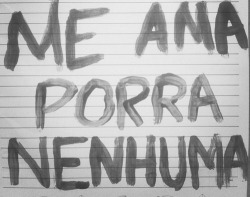 ME AMA
PORRA
NENHUMA